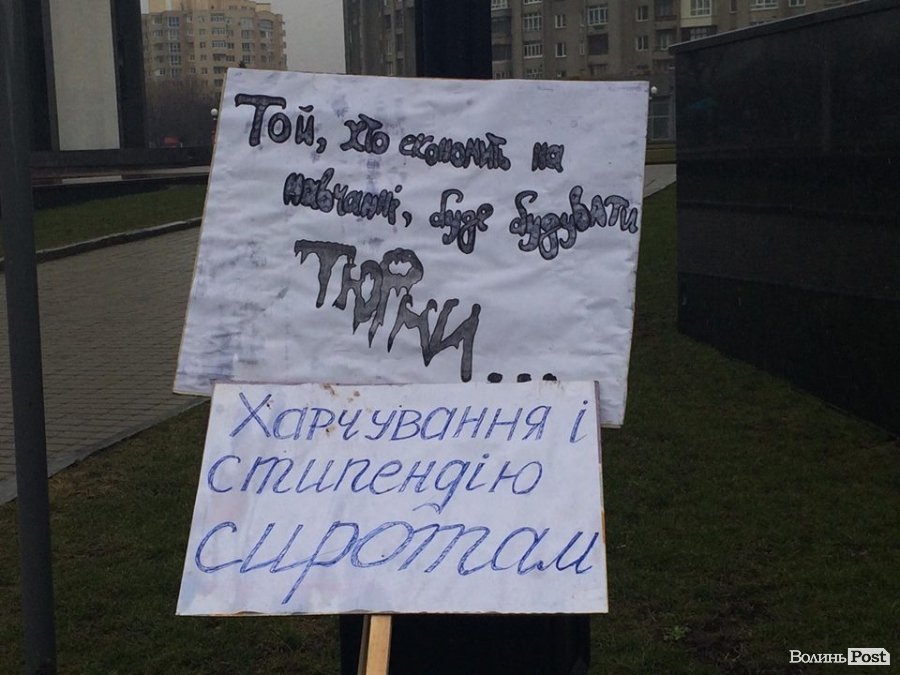 Той, хто економить на
навчанні, буде будувати
ТЮРМИ...
Харчування і
стипендію
сиротам
Волинь Post